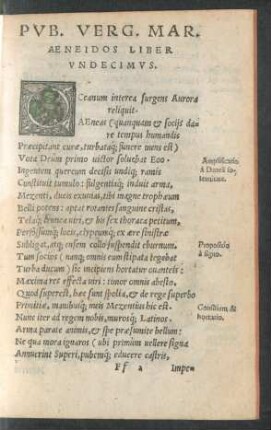 PVB. VERG. MAR.
AENEIDOS LIBER
VNDECIMVS.
OCeanum interea surgens Aurora
reliquit.
AEneas (quanquam & socijs da/
re tempus humandis
Præcipitant curæ, turbataq; funere mens est)
Vota Deûm primo uictor soluebat Eoo.
Ingentem quercum decisis undiq; ramis
Constituit tumulo: fulgentiaq; induit arma,
Mezenti, ducis exuuias, tibi magne trophæum
Belli potens: aptat rorantes sanguine cristas,
Telaq; trunca uiri, & bis sex thoraca petitum,
Perfossumq; locis, clypeumq; ex ære sinistræ
Subligat, atq; ensem collo suspendit eburnum.
Tum socios (namq; omnis eum stipata tegebat
Turba ducum) sic incipiens hortatur ouanteis:
Maxima res effecta uiri: timor omnis abesto,
Quod superest, hæc sunt spolia, & de rege superbo
Primitiæ, manibusq; meis Mezentius hic est.
Nunc iter ad regem nobis, murosq; Latinos.
Arma parate animis, & spe præsumite bellum:
Ne qua mora ignaros (ubi primùm uellere signa
Annuerint Superi, pubemq; educere castris,
Propositio
à signo.
hortatio.
Ff 2 Impe/